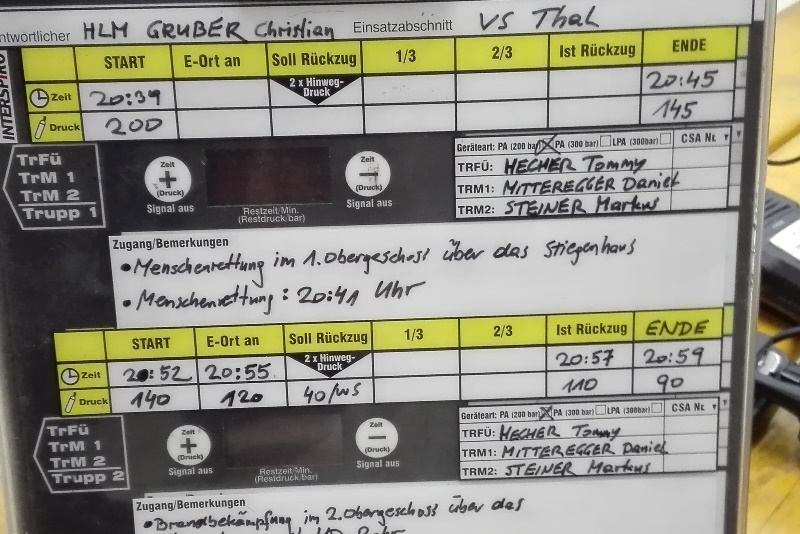 ntwortlicher HLM GRUBER Christian Einsatzabschnitt VS Thal
INTERSPIRO
START E-Ort an Soll Rückzug 1/3 2/3 Ist Rückzug ENDE
2 x Hinweg-Druck
Zeit 20:39 20:45
Druck 200 145
Geräteart: PA (200 bar) PA (300 bar) LPA (300bar) CSA Nr.
TrFü
TrM 1
TrM 2
Trupp 1
Zeit + (Druck) Signal aus
Restzeit/Min. (Restdruck/bar)
Zeit − (Druck) Signal aus
TRFÜ: HECHER Tommy
TRM1: MITTEREGGER Daniel
TRM2: STEINER Markus
Zugang/Bemerkungen
• Menschenrettung im 1. Obergeschoss über das Stiegenhaus
• Menschenrettung: 20:41 Uhr
START E-Ort an Soll Rückzug 1/3 2/3 Ist Rückzug ENDE
2 x Hinweg-Druck
Zeit 20:52 20:55 20:57 20:59
Druck 140 120 40/WS 110 90
Geräteart: PA (200 bar) PA (300 bar) LPA (300bar) CSA Nr.
TrFü
TrM 1
TrM 2
Trupp 2
Zeit + (Druck) Signal aus
Restzeit/Min. (Restdruck/bar)
Zeit − (Druck) Signal aus
TRFÜ: HECHER Tommy
TRM1: MITTEREGGER Daniel
TRM2: STEINER Markus
Zugang/Bemerkungen
• Brandbekämpfung im 2. Obergeschoss über das